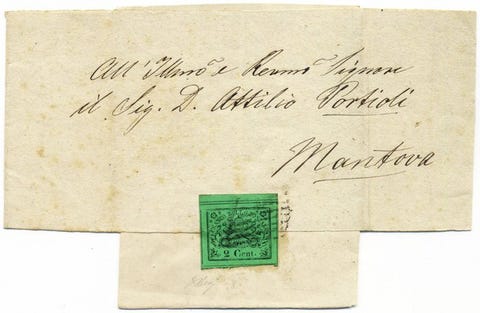 All' Illmo e Revmo Signore
il Sig. D. Attilio Portioli
Mantova
2 Cent.